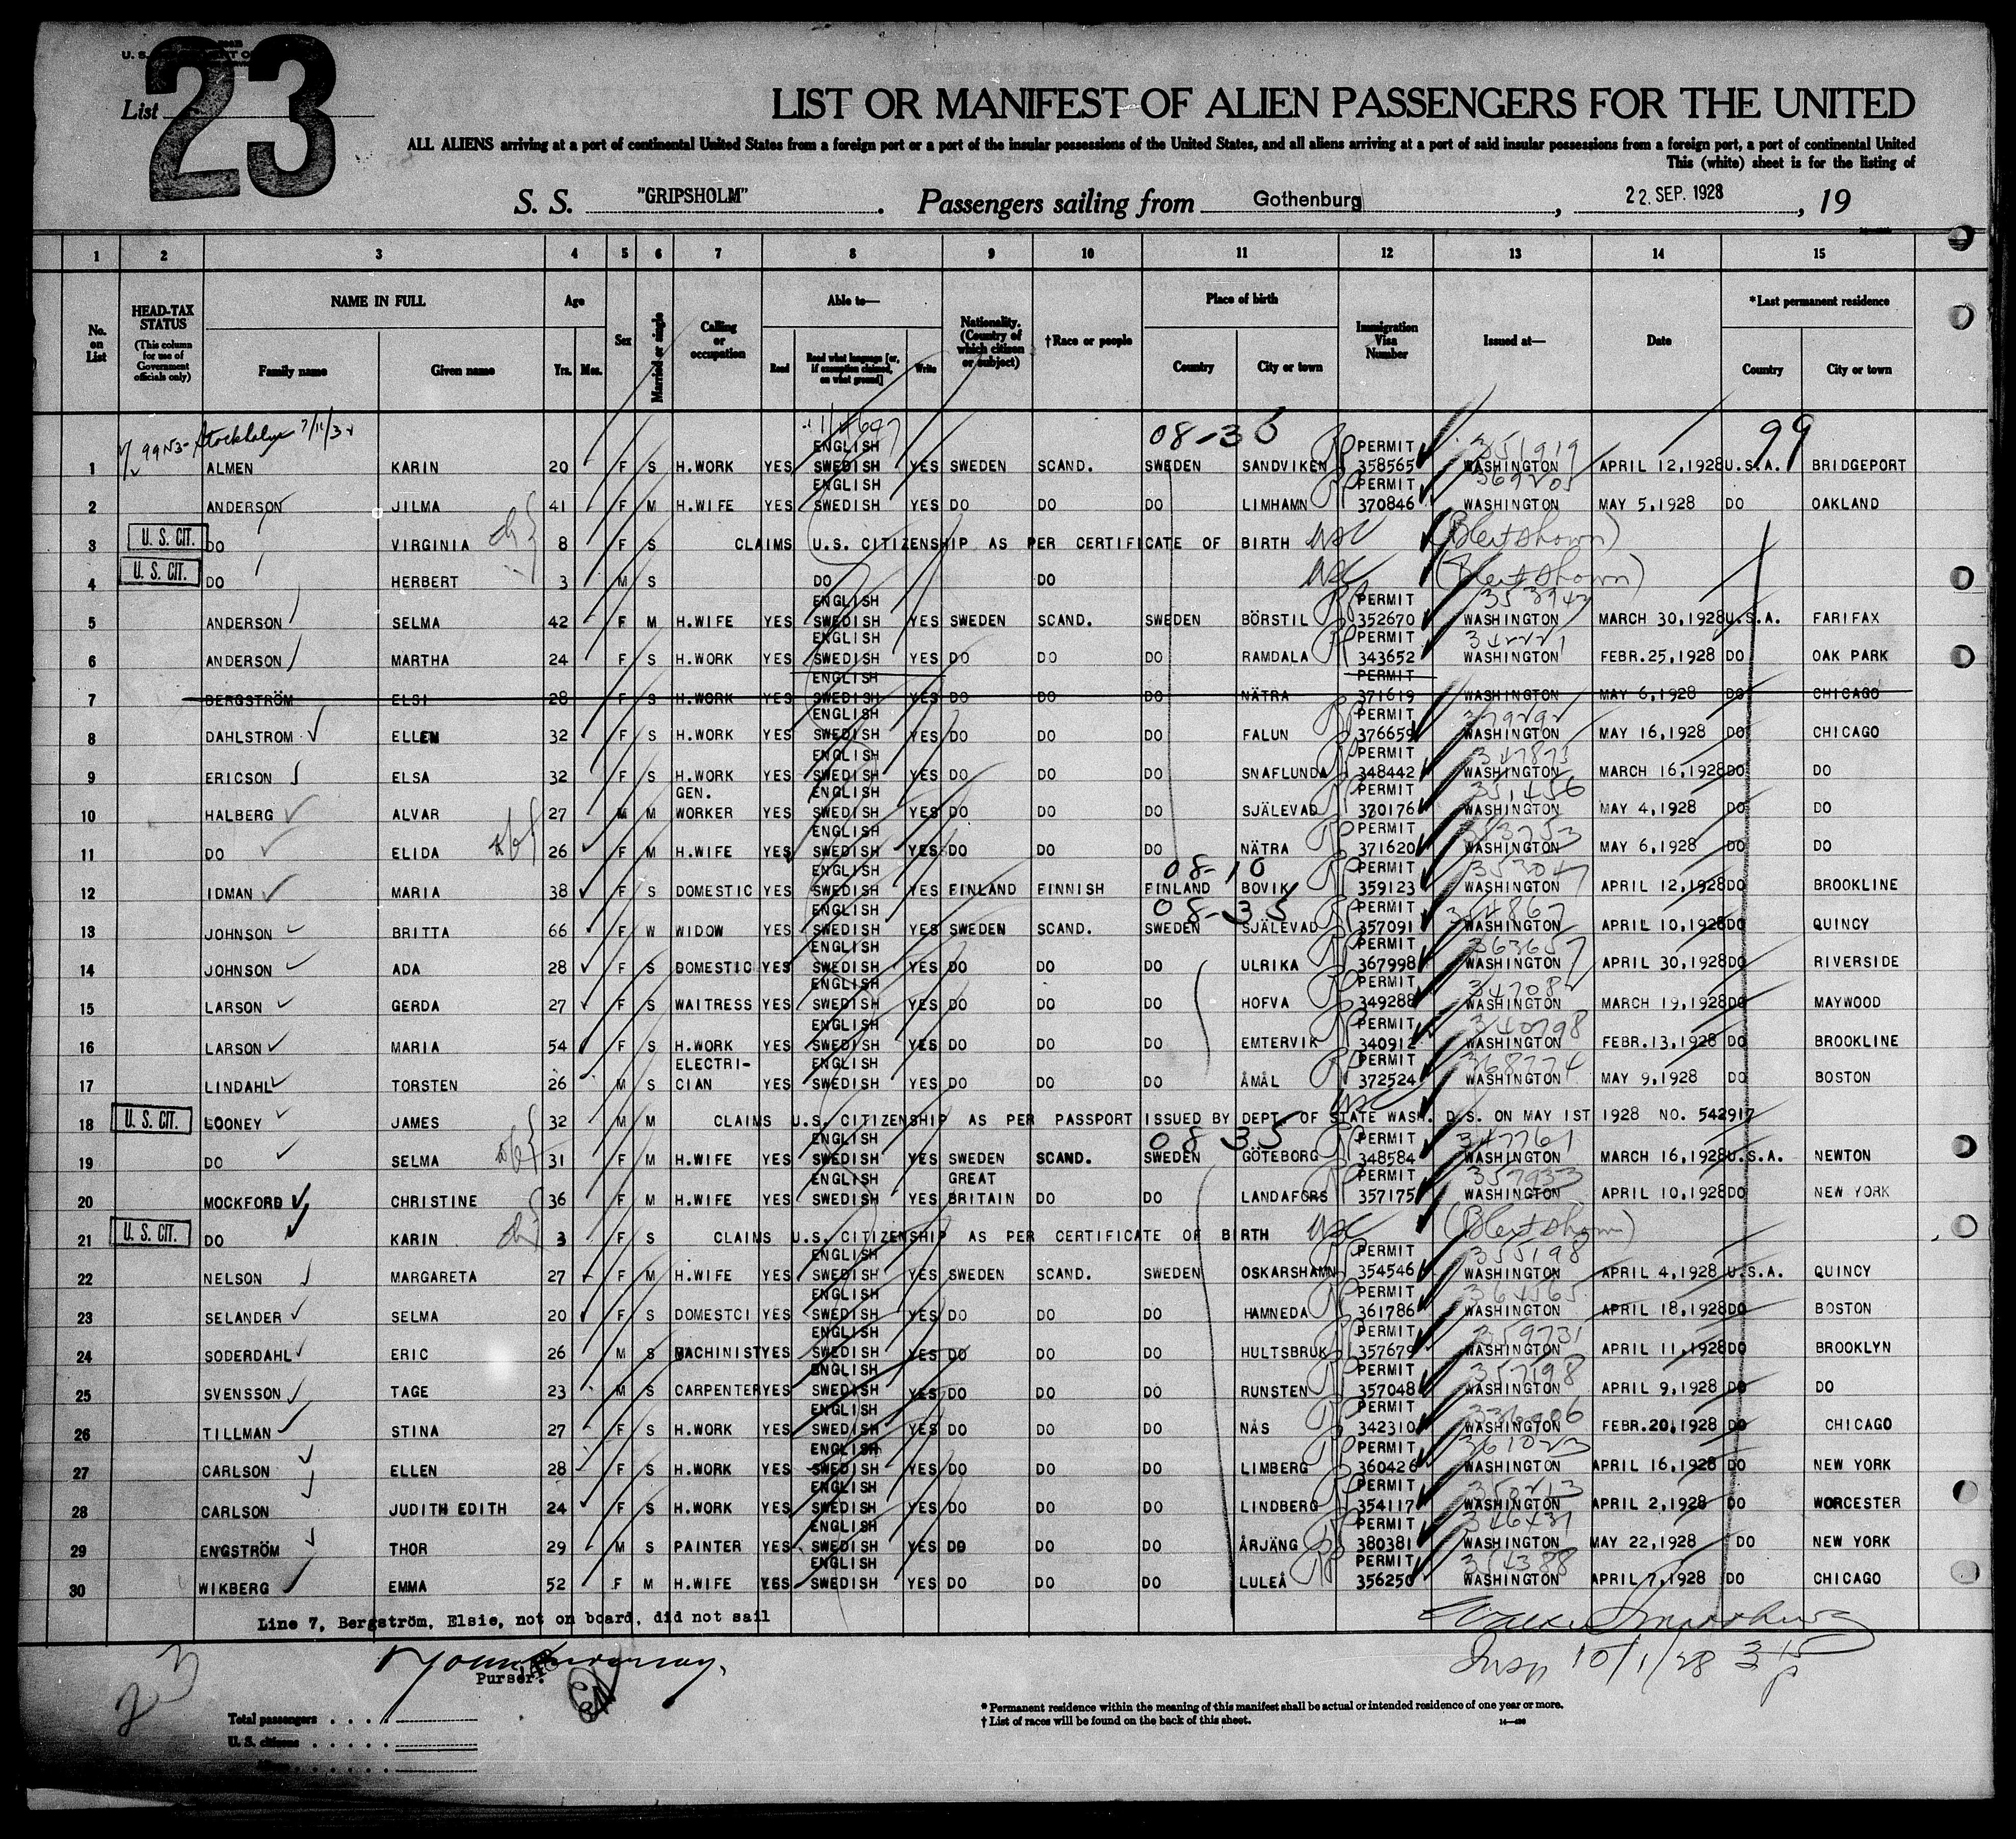 23
List
LIST OR MANIFEST OF ALIEN PASSENGERS FOR THE UNITED
ALL ALIENS arriving at a port of continental United States from a foreign port or a port of the insular possessions of the United States, and all aliens arriving at a port of said insular possessions from a foreign port, a port of continental United
This (white) sheet is for the listing of
S. S. "GRIPSHOLM". Passengers sailing from Gothenburg, 22. SEP. 1928, 19
1 2 3 4 5 6 7 8 9 10 11 12 13 14 15
No. on List
HEAD-TAX STATUS (This column for use of Government officials only)
NAME IN FULL
Family name Given name
Age
Yrs. Mos.
Sex
Married or single
Calling or occupation
Able to—
Read Read what language [or, if exemption claimed, on what ground] Write
Nationality. (Country of which citizen or subject)
†Race or people
Place of birth
Country City or town
Immigration Visa Number
Issued at—
Date
*Last permanent residence
Country City or town
Stockholm 08-35 99
1 ALMEN KARIN 20 F S H.WORK YES ENGLISH SWEDISH YES SWEDEN SCAND. SWEDEN SANDVIKEN PERMIT 358565 351919 WASHINGTON APRIL 12,1928 U.S.A. BRIDGEPORT
2 ANDERSON JILMA 41 F M H.WIFE YES ENGLISH SWEDISH YES DO DO DO LIMHAMN PERMIT 370846 WASHINGTON MAY 5,1928 DO OAKLAND
3 U. S. CIT. DO VIRGINIA 8 F S CLAIMS U.S. CITIZENSHIP AS PER CERTIFICATE OF BIRTH USC (Bcert shown)
4 U. S. CIT. DO HERBERT 3 M S DO DO USC (Bcert shown)
5 ANDERSON SELMA 42 F M H.WIFE YES ENGLISH SWEDISH YES SWEDEN SCAND. SWEDEN BÖRSTIL PERMIT 352670 WASHINGTON MARCH 30,1928 U.S.A. FARIFAX
6 ANDERSON MARTHA 24 F S H.WORK YES ENGLISH SWEDISH YES DO DO DO RAMDALA PERMIT 343652 WASHINGTON FEBR.25,1928 DO OAK PARK
7 BERGSTRÖM ELSI 28 F S H.WORK YES ENGLISH SWEDISH YES DO DO DO NÄTRA PERMIT 371619 WASHINGTON MAY 6,1928 DO CHICAGO
8 DAHLSTROM ELLEN 32 F S H.WORK YES ENGLISH SWEDISH YES DO DO DO FALUN PERMIT 376659 WASHINGTON MAY 16,1928 DO CHICAGO
9 ERICSON ELSA 32 F S H.WORK YES ENGLISH SWEDISH YES DO DO DO SNAFLUNDA PERMIT 348442 347873 WASHINGTON MARCH 16,1928 DO DO
10 HALBERG ALVAR 27 M M GEN. WORKER YES ENGLISH SWEDISH YES DO DO DO SJÄLEVAD PERMIT 370176 351456 WASHINGTON MAY 4,1928 DO DO
11 DO ELIDA 26 F M H.WIFE YES ENGLISH SWEDISH YES DO DO DO NÄTRA PERMIT 371620 WASHINGTON MAY 6,1928 DO DO
08-10
12 IDMAN MARIA 38 F S DOMESTIC YES ENGLISH SWEDISH YES FINLAND FINNISH FINLAND BOVIK PERMIT 359123 353047 WASHINGTON APRIL 12,1928 DO BROOKLINE
08-35
13 JOHNSON BRITTA 66 F W WIDOW YES ENGLISH SWEDISH YES SWEDEN SCAND. SWEDEN SJÄLEVAD PERMIT 357091 354867 WASHINGTON APRIL 10,1928 DO QUINCY
14 JOHNSON ADA 28 F S DOMESTIC YES ENGLISH SWEDISH YES DO DO DO ULRIKA PERMIT 367998 363657 WASHINGTON APRIL 30,1928 DO RIVERSIDE
15 LARSON GERDA 27 F S WAITRESS YES ENGLISH SWEDISH YES DO DO DO HOFVA PERMIT 349288 WASHINGTON MARCH 19,1928 DO MAYWOOD
16 LARSON MARIA 54 F S H.WORK YES ENGLISH SWEDISH YES DO DO DO EMTERVIK PERMIT 340912 340798 WASHINGTON FEBR.13,1928 DO BROOKLINE
17 LINDAHL TORSTEN 26 M S ELECTRI- CIAN YES ENGLISH SWEDISH YES DO DO DO ÅMÅL PERMIT 372524 368774 WASHINGTON MAY 9,1928 DO BOSTON
18 U. S. CIT. LOONEY JAMES 32 M M CLAIMS U.S. CITIZENSHIP AS PER PASSPORT ISSUED BY DEPT. OF STATE WASH. D.S. ON MAY 1ST 1928 NO. 542917 USC
08 35
19 DO SELMA 31 F M H.WIFE YES ENGLISH SWEDISH YES SWEDEN SCAND. SWEDEN GÖTEBORG PERMIT 348584 347761 WASHINGTON MARCH 16,1928 U.S.A. NEWTON
20 MOCKFORD CHRISTINE 36 F M H.WIFE YES ENGLISH SWEDISH YES GREAT BRITAIN DO DO LANDAFORS PERMIT 357175 357933 WASHINGTON APRIL 10,1928 DO NEW YORK
21 U. S. CIT. DO KARIN 3 F S CLAIMS U.S. CITIZENSHIP AS PER CERTIFICATE OF BIRTH USC (Bcert shown)
22 NELSON MARGARETA 27 F M H.WIFE YES ENGLISH SWEDISH YES SWEDEN SCAND. SWEDEN OSKARSHAMN PERMIT 354546 355198 WASHINGTON APRIL 4,1928 U.S.A. QUINCY
23 SELANDER SELMA 20 F S DOMESTCI YES ENGLISH SWEDISH YES DO DO DO HAMNEDA PERMIT 361786 364565 WASHINGTON APRIL 18,1928 DO BOSTON
24 SODERDAHL ERIC 26 M S MACHINIST YES ENGLISH SWEDISH YES DO DO DO HULTSBRUK PERMIT 357679 359731 WASHINGTON APRIL 11,1928 DO BROOKLYN
25 SVENSSON TAGE 23 M S CARPENTER YES ENGLISH SWEDISH YES DO DO DO RUNSTEN PERMIT 357048 357198 WASHINGTON APRIL 9,1928 DO DO
26 TILLMAN STINA 27 F S H.WORK YES ENGLISH SWEDISH YES DO DO DO NÅS PERMIT 342310 WASHINGTON FEBR.20,1928 DO CHICAGO
27 CARLSON ELLEN 28 F S H.WORK YES ENGLISH SWEDISH YES DO DO DO LIMBERG PERMIT 360426 361023 WASHINGTON APRIL 16,1928 DO NEW YORK
28 CARLSON JUDITH EDITH 24 F S H.WORK YES ENGLISH SWEDISH YES DO DO DO LINDBERG PERMIT 354117 350213 WASHINGTON APRIL 2,1928 DO WORCESTER
29 ENGSTRÖM THOR 29 M S PAINTER YES ENGLISH SWEDISH YES DO DO DO ÅRJÄNG PERMIT 380381 346431 WASHINGTON MAY 22,1928 DO NEW YORK
30 WIKBERG EMMA 52 F M H.WIFE YES ENGLISH SWEDISH YES DO DO DO LULEÅ PERMIT 356250 354388 WASHINGTON APRIL 7,1928 DO CHICAGO
Line 7, Bergström, Elsie, not on board, did not sail
Purser.
Insp 10/1/28
23
Total passengers
U. S. citizens
* Permanent residence within the meaning of this manifest shall be actual or intended residence of one year or more.
† List of races will be found on the back of this sheet.